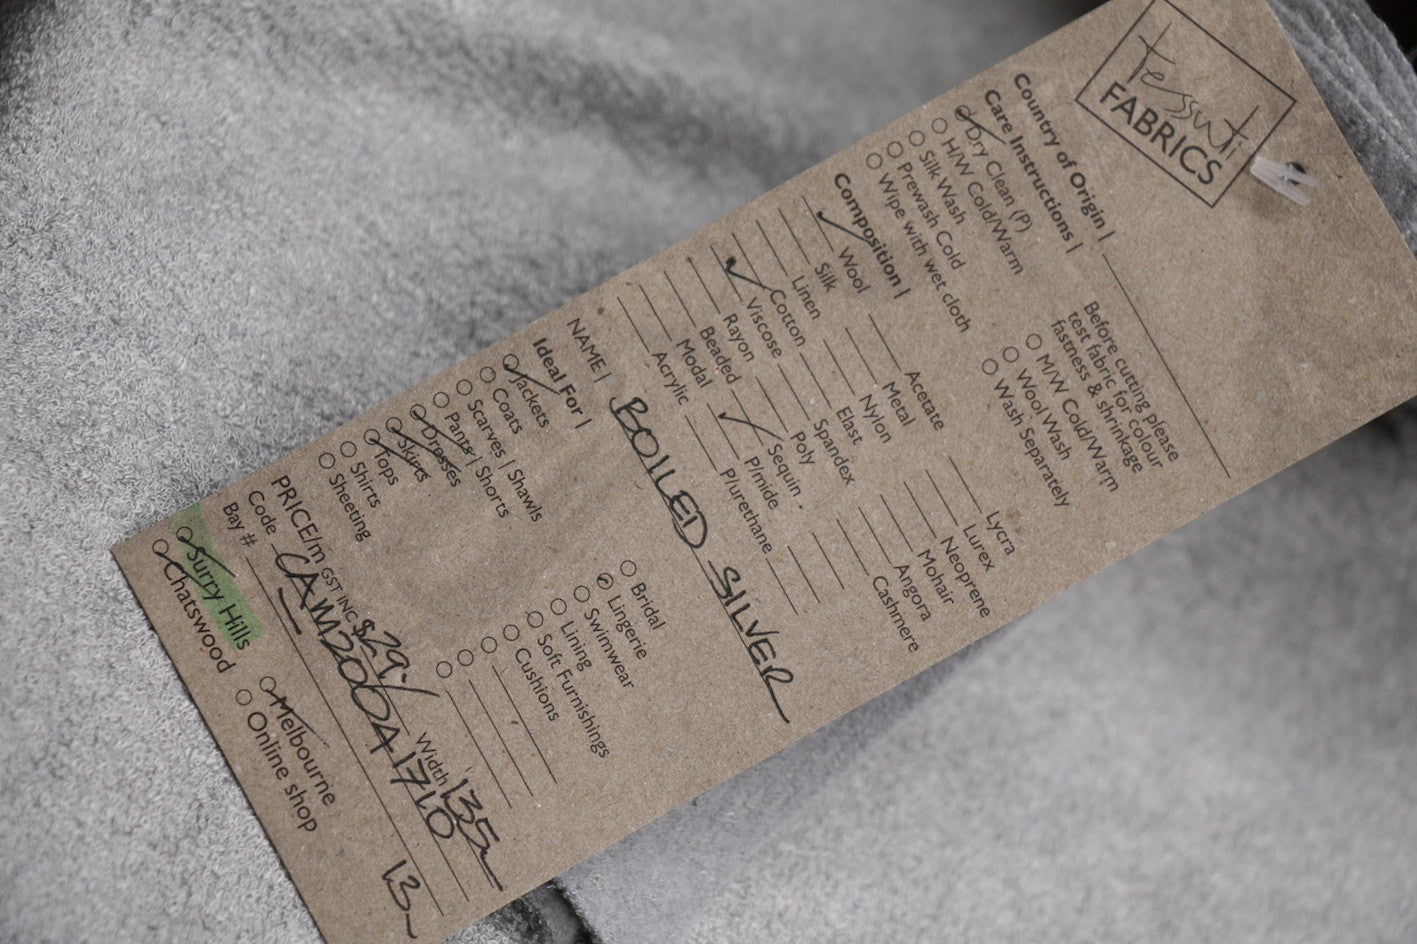 Tessuti
FABRICS
Country of Origin |
Care Instructions |
Dry Clean (P)
H/W Cold/Warm
Silk Wash
Prewash Cold
Wipe with wet cloth
Before cutting please
test fabric for colour
fastness & shrinkage
M/W Cold/Warm
Wool Wash
Wash Separately
Composition |
Wool
Silk
Linen
Cotton
Viscose
Rayon
Beaded
Modal
Acrylic
Acetate
Metal
Nylon
Elast
Spandex
Poly
Sequin
P/mide
P/urethane
Lycra
Lurex
Neoprene
Mohair
Angora
Cashmere
NAME | BOILED SILVER
Ideal For |
Jackets
Coats
Scarves | Shawls
Pants | Shorts
Dresses
Skirts
Tops
Shirts
Sheeting
Bridal
Lingerie
Swimwear
Lining
Soft Furnishings
Cushions
PRICE/m GST INC $29.- Width 135
Code CAM2004 1710
Bay # 13
Surry Hills
Chatswood
Melbourne
Online shop